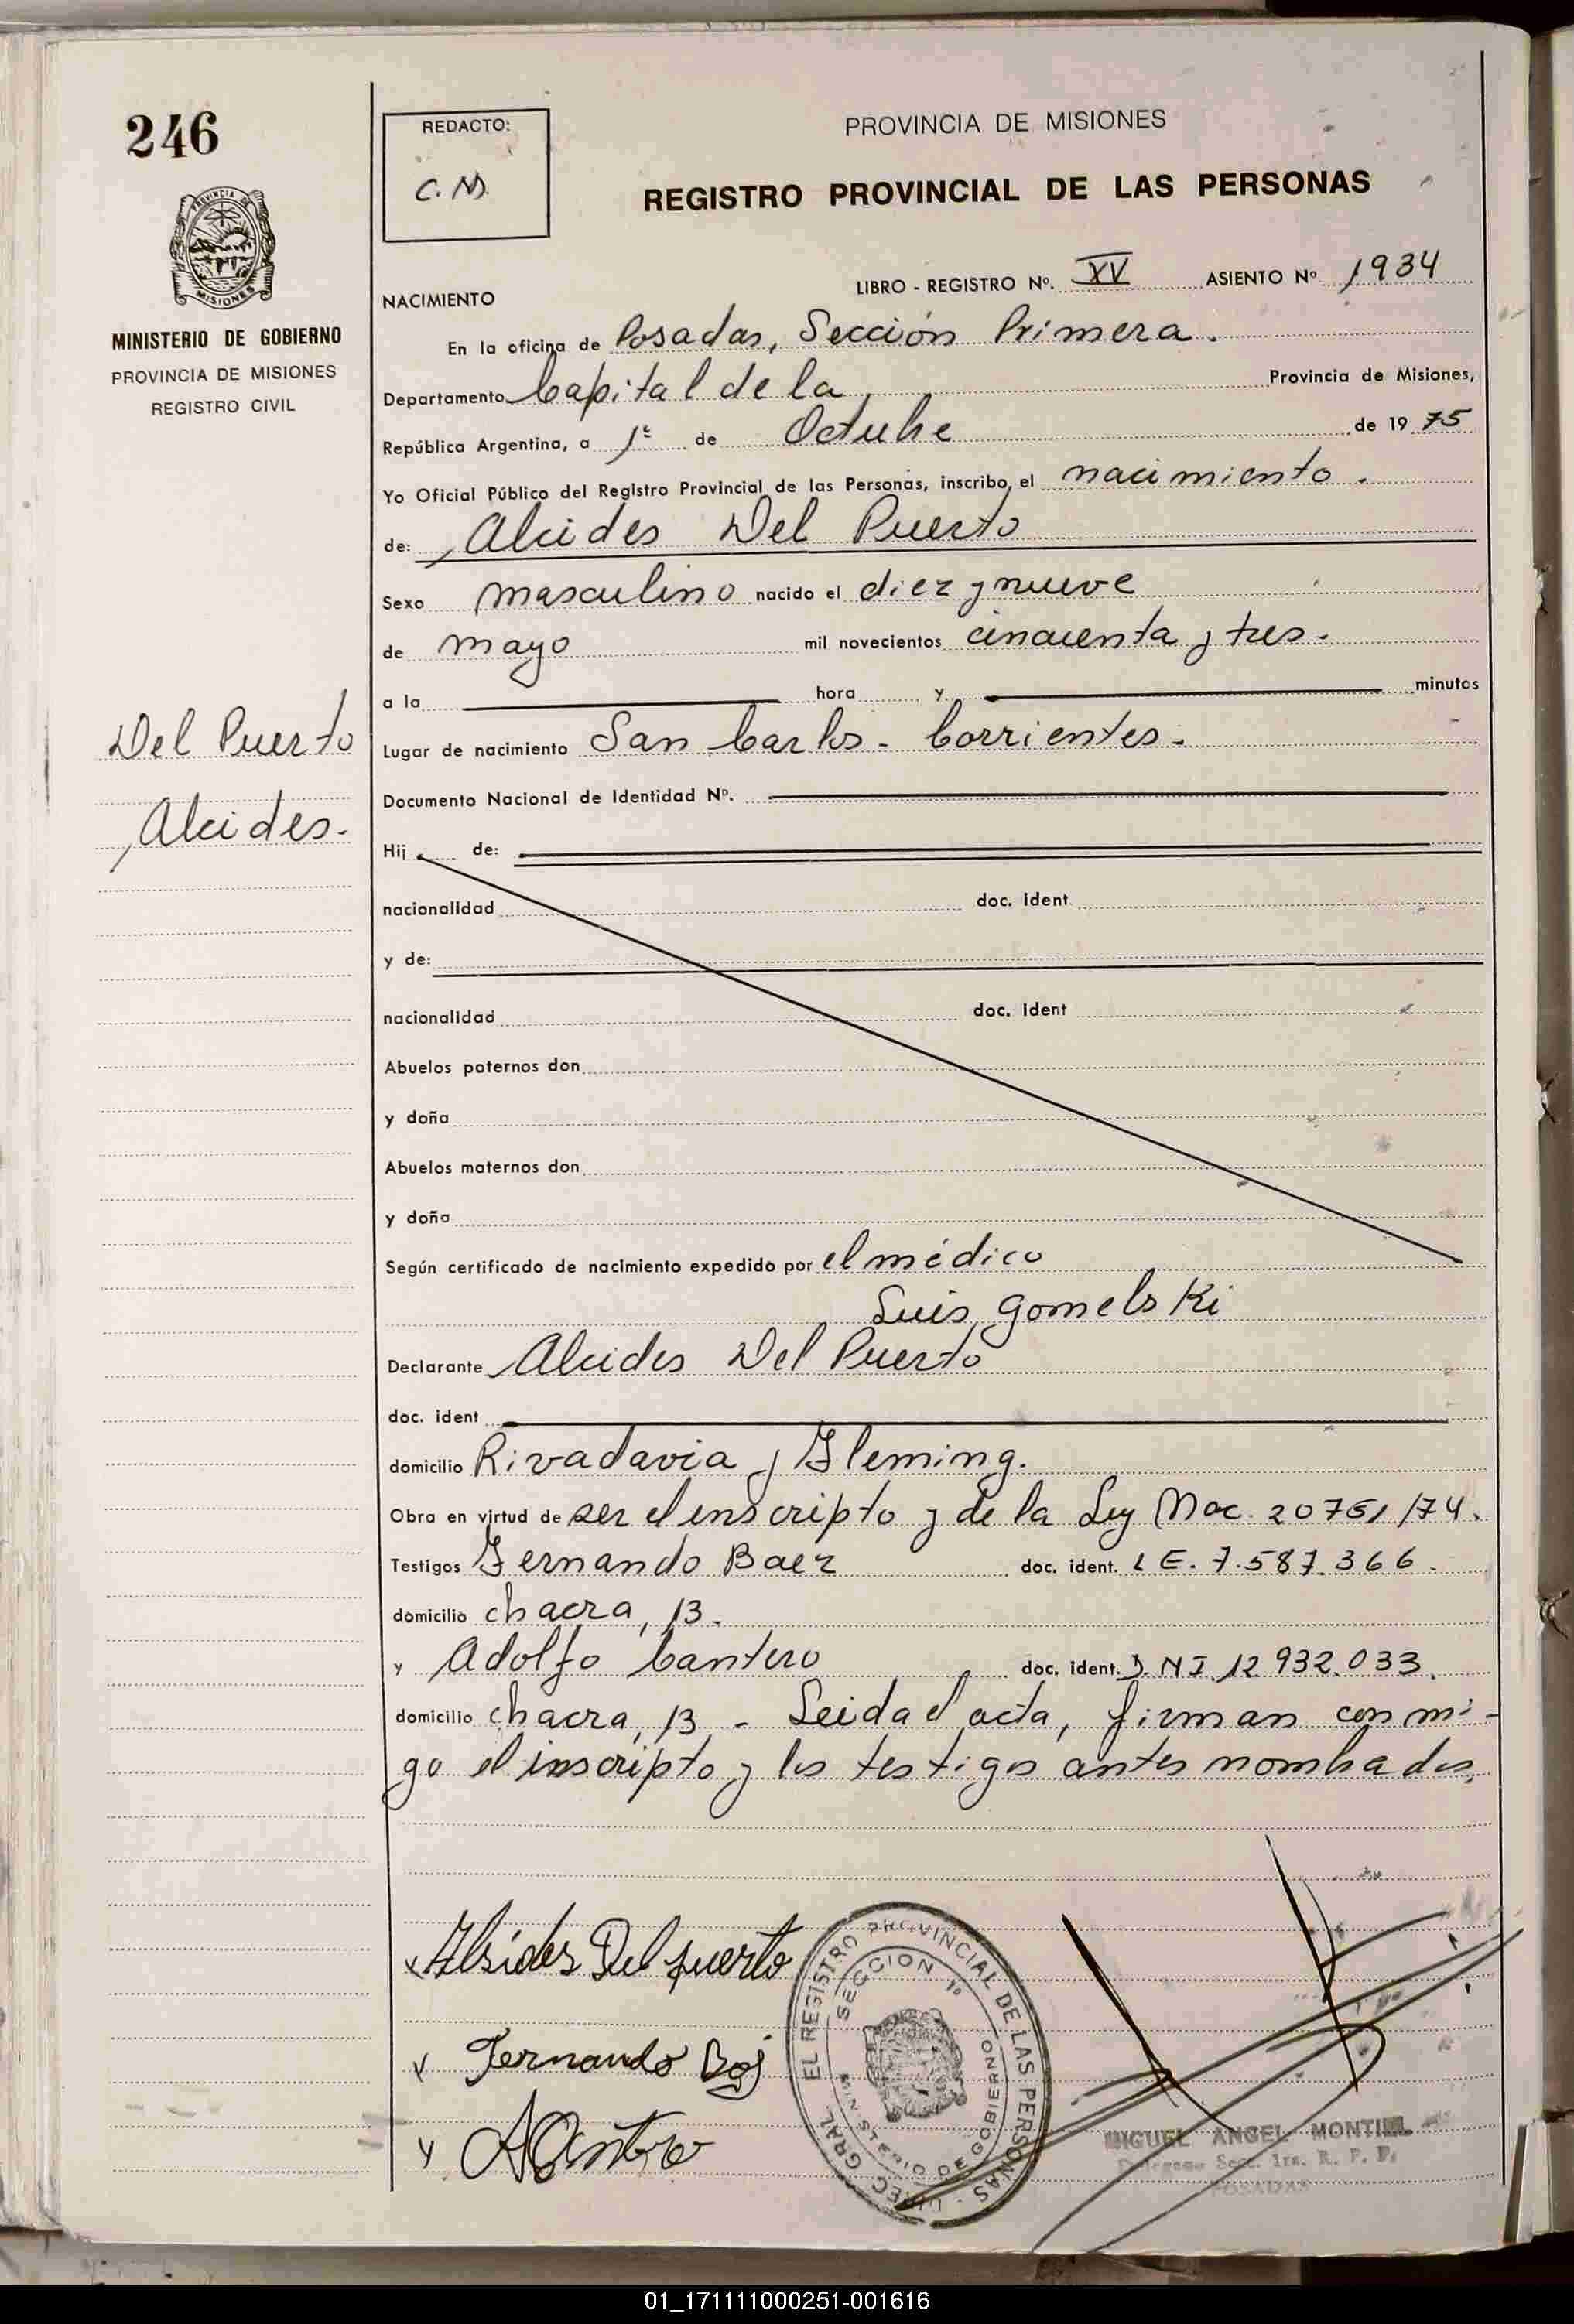 246
REDACTO:
C. M.
PROVINCIA DE MISIONES
REGISTRO PROVINCIAL DE LAS PERSONAS
PROVINCIA DE
MISIONES
MINISTERIO DE GOBIERNO
PROVINCIA DE MISIONES
REGISTRO CIVIL
NACIMIENTO
LIBRO - REGISTRO Nº. XV ASIENTO Nº 1934
En la oficina de Posadas, Sección Primera.
Departamento Capital de la Provincia de Misiones,
República Argentina, a 1º de Octubre de 1975
Yo Oficial Público del Registro Provincial de las Personas, inscribo el nacimiento.
de: Alcides Del Puerto
Sexo masculino nacido el diez y nueve
de mayo mil novecientos cincuenta y tres.
a la hora y minutos
Del Puerto
Alcides.
Lugar de nacimiento San Carlos - Corrientes.
Documento Nacional de Identidad Nº.
Hij de:
nacionalidad doc. ident
y de:
nacionalidad doc. ident
Abuelos paternos don
y doña
Abuelos maternos don
y doña
Según certificado de nacimiento expedido por el médico
Luis Gomelski
Declarante Alcides Del Puerto
doc. ident
domicilio Rivadavia y Fleming.
Obra en virtud de ser el inscripto y de la Ley Nac. 20751/74.
Testigos Fernando Baez doc. ident. L E. 7.587.366.
domicilio chacra, 13.
y Adolfo Cantero doc. ident. D N I. 12 932.033.
domicilio chacra, 13 - Leida el acta, firman conmi-
go el inscripto y los testigos antes nombrados.
x Alsides Del puerto
x Fernando
x
EL REGISTRO PROVINCIAL DE LAS PERSONAS - DIREC. GRAL
SECCION 1º
MINISTERIO DE GOBIERNO
MIGUEL ANGEL MONTIEL
Delegado Secc. 1ra. R. P. P.
POSADAS
01_171111000251-001616